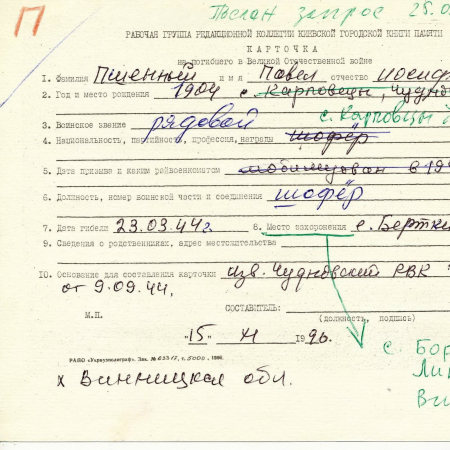 П
Послан запрос 25.0
РАБОЧАЯ ГРУППА РЕДАКЦИОННОЙ КОЛЛЕГИИ КИЕВСКОЙ ГОРОДСКОЙ КНИГИ ПАМЯТИ
КАРТОЧКА
на погибшего в Великой Отечественной войне
1. Фамилия Пшенный имя Павел отчество Иосиф
2. Год и место рождения 1904 с. Карповцы, Чудн
с. Карповцы
3. Воинское звание рядовой
4. Национальность, партийность, профессия, награды шофёр
5. Дата призыва и каким райвоенкоматом мобилизован в 19
6. Должность, номер воинской части и соединения шофёр
7. Дата гибели 23.03.44г 8. Место захоронения с. Бертки
9. Сведения о родственниках, адрес местожительства
10. Основание для составления карточки изв. Чудновский РВК
от 9.09.44,
М.П. СОСТАВИТЕЛЬ:
(должность, подпись)
"15" XI 1996.
с. Бор
Ли
Ви
РАПО «Укрвузполиграф». Зак. № 033.17, т. 5000. 1996.
х Винницкая обл.